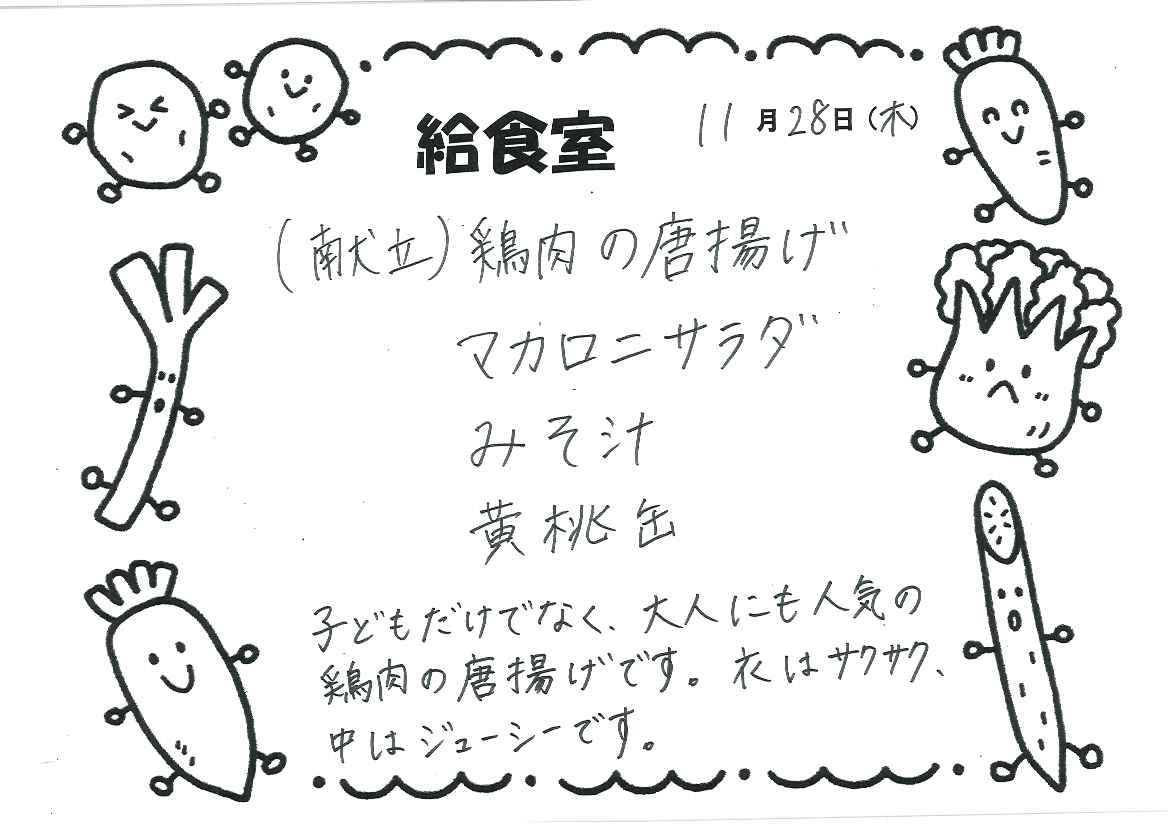 給食室 11月28日(木)
(献立)鶏肉の唐揚げ
マカロニサラダ
みそ汁
黄桃缶
子どもだけでなく、大人にも人気の
鶏肉の唐揚げです。衣はサクサク、
中はジューシーです。